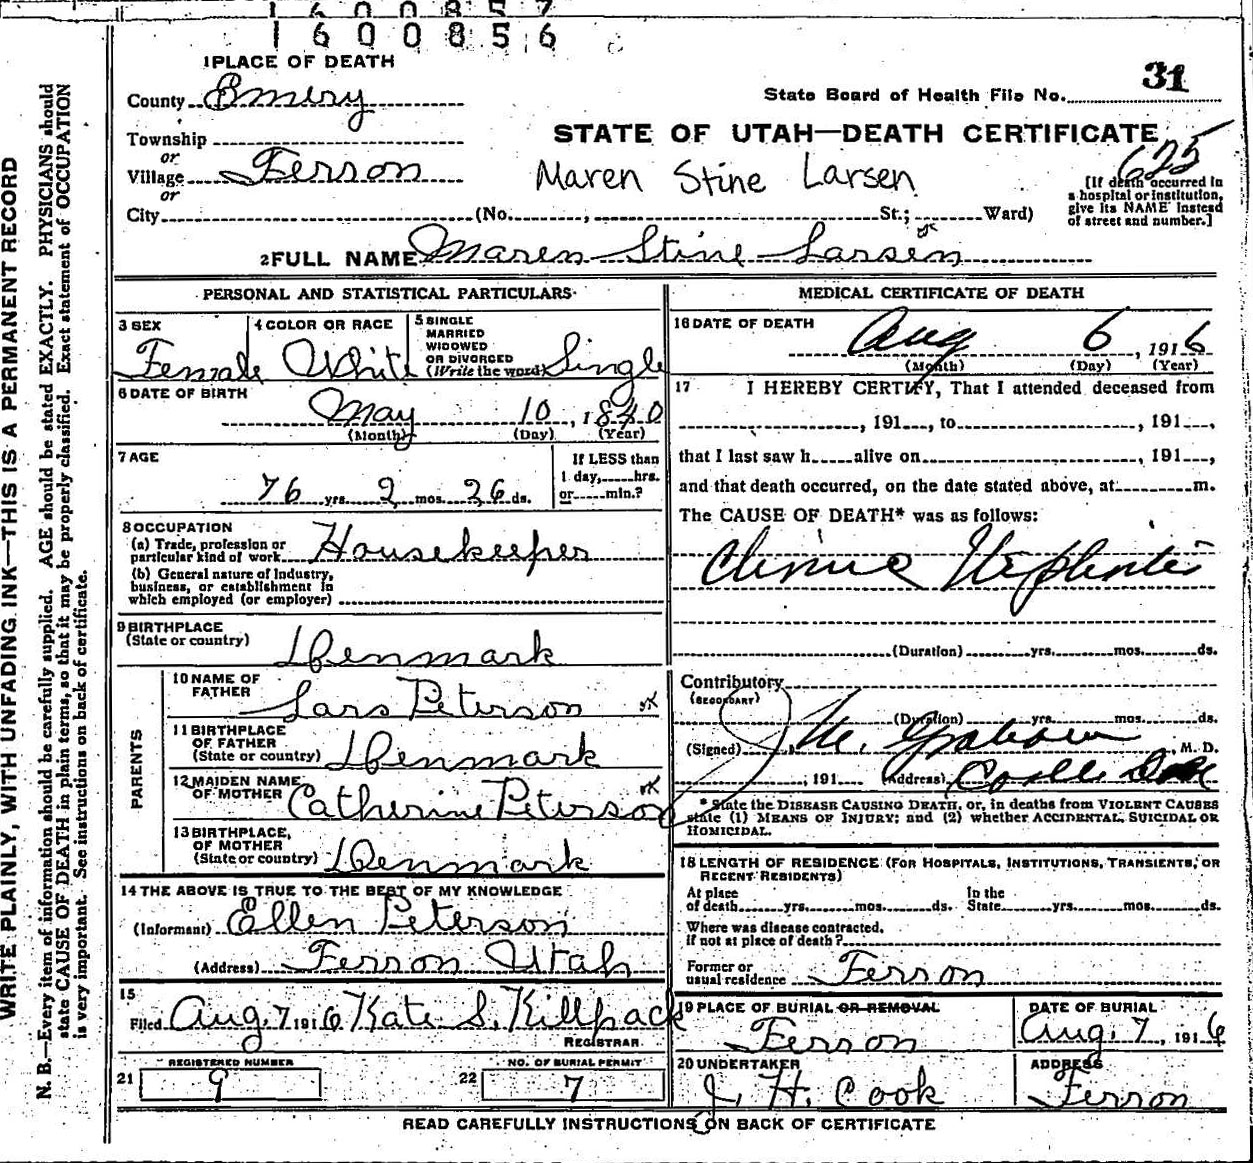 1600857
1600856
1 PLACE OF DEATH
County Emery
Township
or
Village Ferron
or
City (No. , St.; Ward)
31
State Board of Health File No.
STATE OF UTAH—DEATH CERTIFICATE
625
Maren Stine Larsen
[If death occurred in
a hospital or institution,
give its NAME instead
of street and number.]
2 FULL NAME Maren Stine Larsen
PERSONAL AND STATISTICAL PARTICULARS
3 SEX
Female
4 COLOR OR RACE
White
5 SINGLE
MARRIED
WIDOWED
OR DIVORCED
(Write the word) Single
6 DATE OF BIRTH
May 10, 1840
(Month) (Day) (Year)
7 AGE
76 yrs. 2 mos. 26 ds.
If LESS than
1 day, hrs.
or min.?
8 OCCUPATION
(a) Trade, profession or
particular kind of work Housekeeper
(b) General nature of Industry,
business, or establishment in
which employed (or employer)
9 BIRTHPLACE
(State or country)
Denmark
PARENTS
10 NAME OF
FATHER
Lars Peterson
11 BIRTHPLACE
OF FATHER
(State or country) Denmark
12 MAIDEN NAME
OF MOTHER Catherine Peterson
13 BIRTHPLACE,
OF MOTHER
(State or country) Denmark
14 THE ABOVE IS TRUE TO THE BEST OF MY KNOWLEDGE
(Informant) Ellen Peterson
(Address) Ferron Utah
15
Filed Aug. 7, 1916 Kate S. Killpack
REGISTRAR
REGISTERED NUMBER
21 9
NO. OF BURIAL PERMIT
22 7
MEDICAL CERTIFICATE OF DEATH
16 DATE OF DEATH
Aug 6, 1916
(Month) (Day) (Year)
17 I HEREBY CERTIFY, That I attended deceased from
, 191 , to , 191 ,
that I last saw h alive on , 191 ,
and that death occurred, on the date stated above, at m.
The CAUSE OF DEATH* was as follows:
Nephritis
(Duration) yrs. mos. ds.
Contributory
(SECONDARY)
(Duration) yrs. mos. ds.
(Signed) M. D.
, 191 (Address)
* State the DISEASE CAUSING DEATH, or, in deaths from VIOLENT CAUSES
state (1) MEANS OF INJURY; and (2) whether ACCIDENTAL, SUICIDAL OR
HOMICIDAL.
18 LENGTH OF RESIDENCE (FOR HOSPITALS, INSTITUTIONS, TRANSIENTS, OR
RECENT RESIDENTS)
At place
of death yrs. mos. ds.
In the
State yrs. mos. ds.
Where was disease contracted,
if not at place of death?
Former or
usual residence Ferron
19 PLACE OF BURIAL OR REMOVAL
Ferron
DATE OF BURIAL
Aug. 7, 1916
20 UNDERTAKER
J. H. Cook
ADDRESS
Ferron
READ CAREFULLY INSTRUCTIONS ON BACK OF CERTIFICATE
WRITE PLAINLY, WITH UNFADING INK—THIS IS A PERMANENT RECORD
N. B.—Every item of information should be carefully supplied. AGE should be stated EXACTLY. PHYSICIANS should
state CAUSE OF DEATH in plain terms, so that it may be properly classified. Exact statement of OCCUPATION
is very important. See instructions on back of certificate.